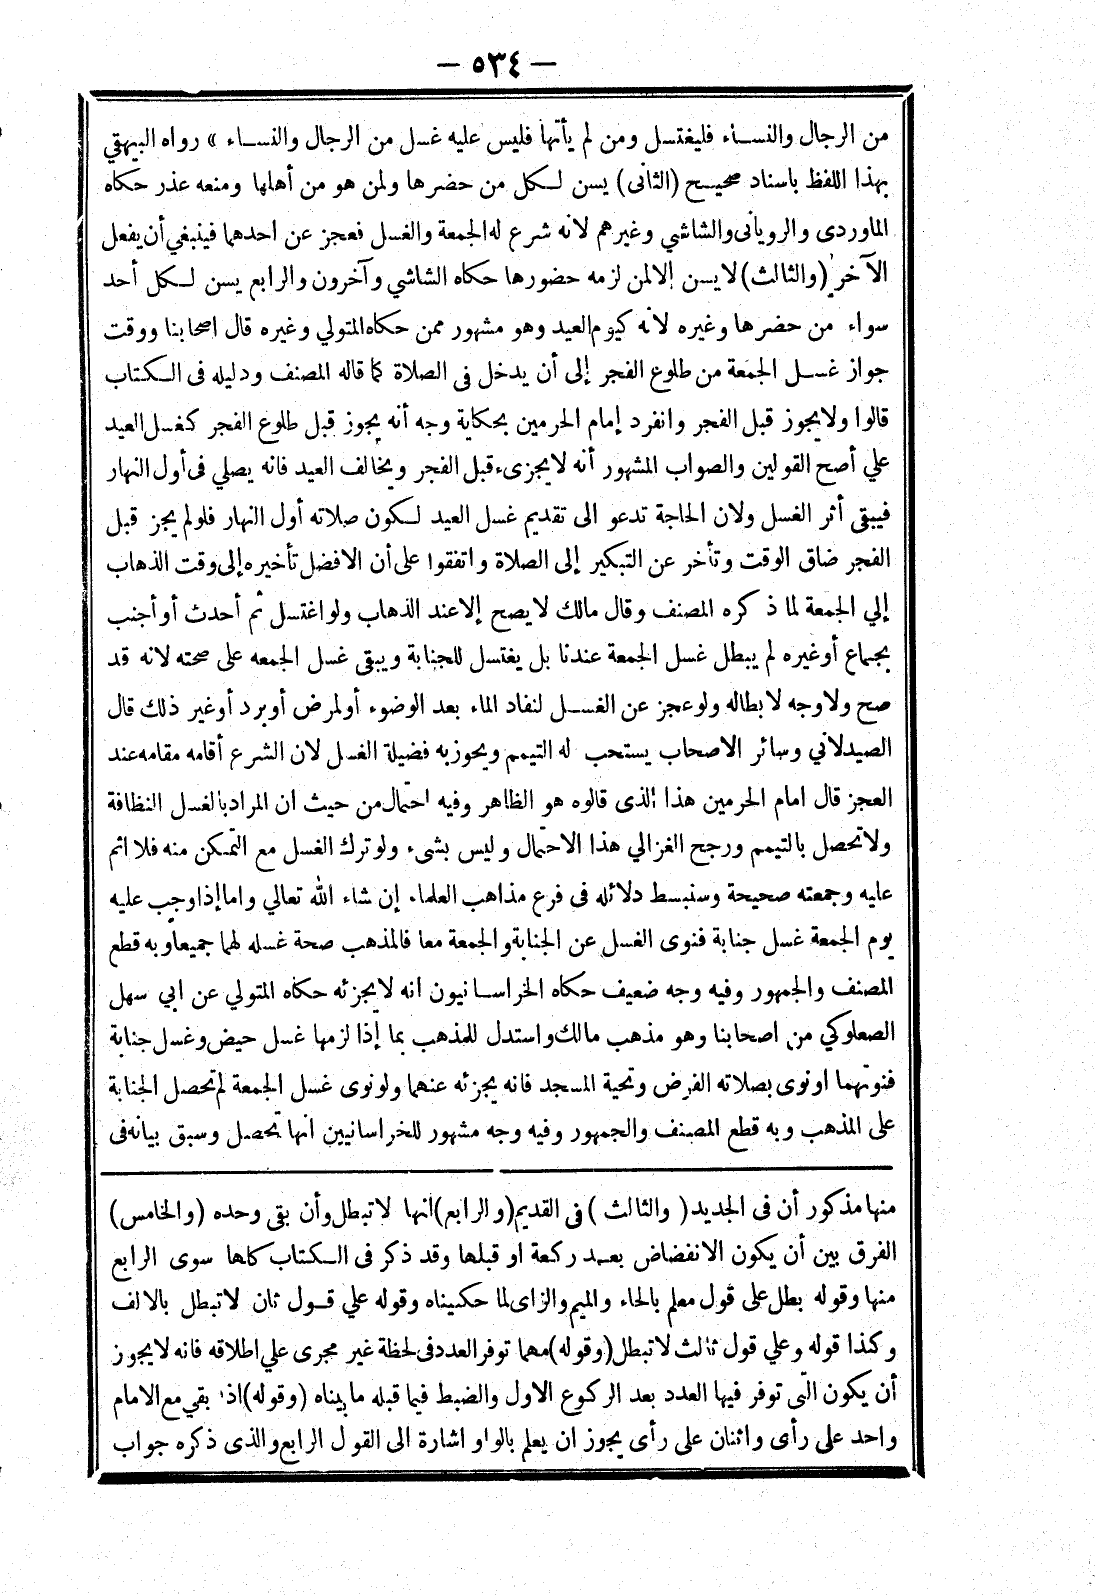 — ٥٣٤ —
من الرجال والنساء فليغتسل ومن لم يأتها فليس عليه غسل من الرجال والنساء » رواه البيهقي
بهذا اللفظ باسناد صحيح (الثانى) يسن لكل من حضرها ولمن هو من أهلها ومنعه عذر حكاه
الماوردى والرويانى والشاشي وغيرهم لانه شرع له الجمعة والغسل فعجز عن احدهما فينبغي أن يفعل
الآخر (والثالث) لا يسن الا لمن لزمه حضورها حكاه الشاشي وآخرون والرابع يسن لكل أحد
سواء من حضرها وغيره لانه كيوم العيد وهو مشهور ممن حكاه المتولي وغيره قال اصحابنا ووقت
جواز غسل الجمعة من طلوع الفجر إلى أن يدخل فى الصلاة كما قاله المصنف ودليله فى الكتاب
قالوا ولا يجوز قبل الفجر وانفرد إمام الحرمين بحكاية وجه أنه يجوز قبل طلوع الفجر كغسل العيد
علي أصح القولين والصواب المشهور أنه لا يجزىء قبل الفجر ويخالف العيد فانه يصلي فى أول النهار
فيبقى أثر الغسل ولان الحاجة تدعو الى تقديم غسل العيد لكون صلاته أول النهار فلو لم يجز قبل
الفجر ضاق الوقت وتأخر عن التبكير إلى الصلاة واتفقوا على أن الافضل تأخيره إلى وقت الذهاب
إلي الجمعة لما ذكره المصنف وقال مالك لا يصح إلا عند الذهاب ولو اغتسل ثم أحدث أو أجنب
بجماع أو غيره لم يبطل غسل الجمعة عندنا بل يغتسل للجنابة ويبقى غسل الجمعه على صحته لانه قد
صح ولا وجه لابطاله ولو عجز عن الغسل لنفاد الماء بعد الوضوء أو لمرض أو برد أو غير ذلك قال
الصيدلاني وسائر الاصحاب يستحب له التيمم ويحوز به فضيلة الغسل لان الشرع أقامه مقامه عند
العجز قال امام الحرمين هذا الذى قالوه هو الظاهر وفيه احتمال من حيث ان المراد بالغسل النظافة
ولا تحصل بالتيمم ورجح الغزالي هذا الاحتمال وليس بشىء ولو ترك الغسل مع التمكن منه فلا اثم
عليه وجمعته صحيحة وسنبسط دلائله فى فرع مذاهب العلماء إن شاء الله تعالي واما إذا وجب عليه
يوم الجمعة غسل جنابة فنوى الغسل عن الجنابة والجمعة معا فالمذهب صحة غسله لهما جميعا وبه قطع
المصنف والجمهور وفيه وجه ضعيف حكاه الخراسانيون انه لا يجزئه حكاه المتولي عن ابي سهل
الصعلوكي من اصحابنا وهو مذهب مالك واستدل للمذهب بما إذا لزمها غسل حيض وغسل جنابة
فنوتهما او نوى بصلاته الفرض وتحية المسجد فانه يجزئه عنهما ولو نوى غسل الجمعة لم تحصل الجنابة
على المذهب وبه قطع المصنف والجمهور وفيه وجه مشهور للخراسانيين انها تحصل وسبق بيانه فى
منها مذكور أن فى الجديد (والثالث) فى القديم (والرابع) انها لا تبطل وأن بقى وحده (والخامس)
الفرق بين أن يكون الانفضاض بعد ركعة او قبلها وقد ذكر فى الكتاب كلها سوى الرابع
منها وقوله بطل على قول معلم بالحاء والميم والزاى لما حكيناه وقوله علي قول ثان لا تبطل بالالف
وكذا قوله وعلي قول ثالث لا تبطل (وقوله) مهما توفر العدد فى لحظة غير مجرى علي اطلاقه فانه لا يجوز
أن يكون التى توفر فيها العدد بعد الركوع الاول والضبط فيما قبله ما بيناه (وقوله) اذا بقي مع الامام
واحد على رأى واثنان على رأى يجوز ان يعلم بالواو اشارة الى القول الرابع والذى ذكره جواب